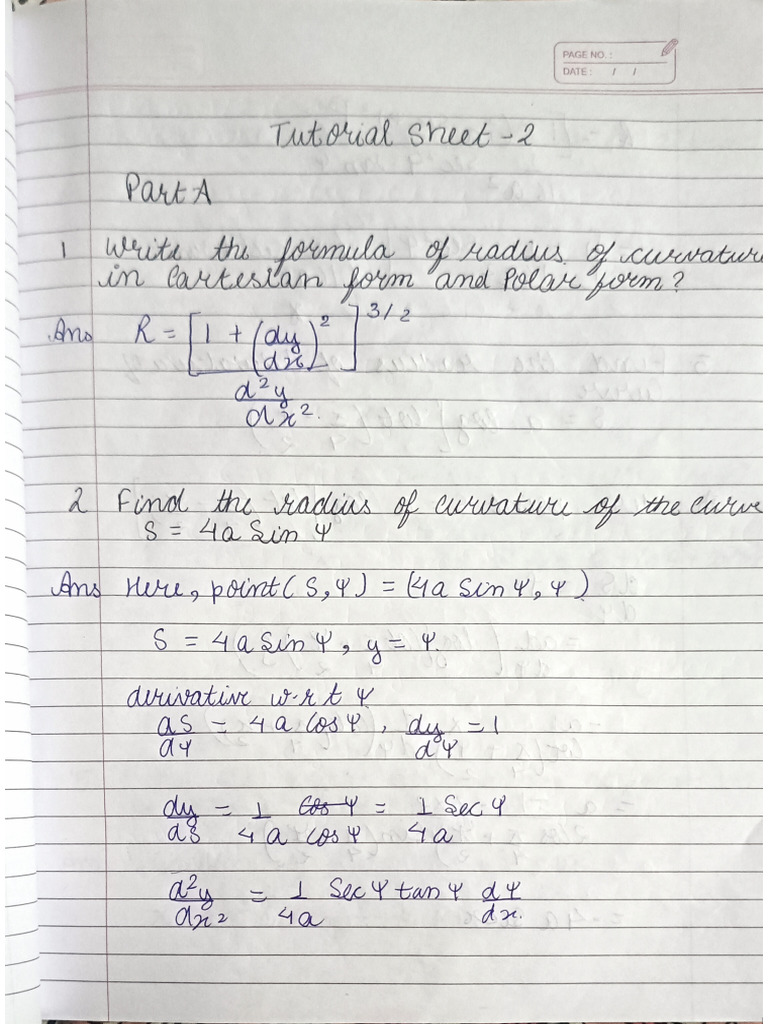 PAGE NO. :
DATE : / /
Tutorial Sheet - 2
Part A
1 Write the formula of radius of curvature
in Cartesian form and Polar form?
Ans R = [1 + (dy/dx)²]^3/2 / d²y/dx².
2 Find the radius of curvature of the curve
S = 4a Sin Ψ
Ans Here, point (S, Ψ) = (4a Sin Ψ, Ψ)
S = 4a Sin Ψ, y = Ψ.
derivative w.r.t Ψ
dS/dΨ = 4a Cos Ψ, dy/dΨ = 1
dy/dS = 1/4a Cos Ψ/Cos Ψ = 1/4a Sec Ψ
d²y/dx² = 1/4a Sec Ψ tan Ψ dΨ/dx.